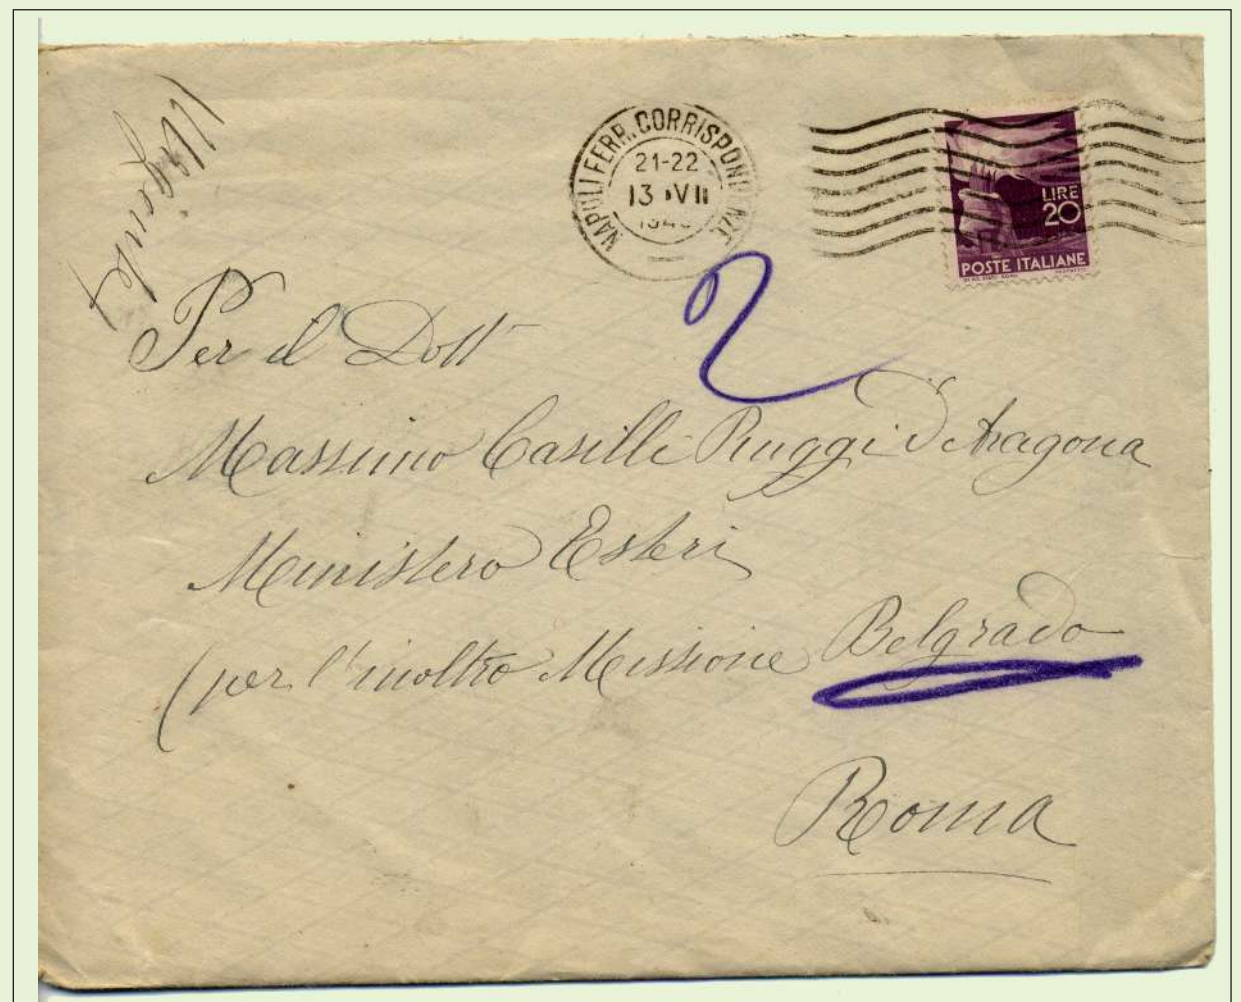 Urgente
NAPOLI FERR. CORRISPONDENZE
21-22
13 VII
LIRE
20
POSTE ITALIANE
2
Per il Dott
Massimo Casilli Ruggi d'Aragona
Ministero Esteri
(per l'inoltro Missione Belgrado
Roma